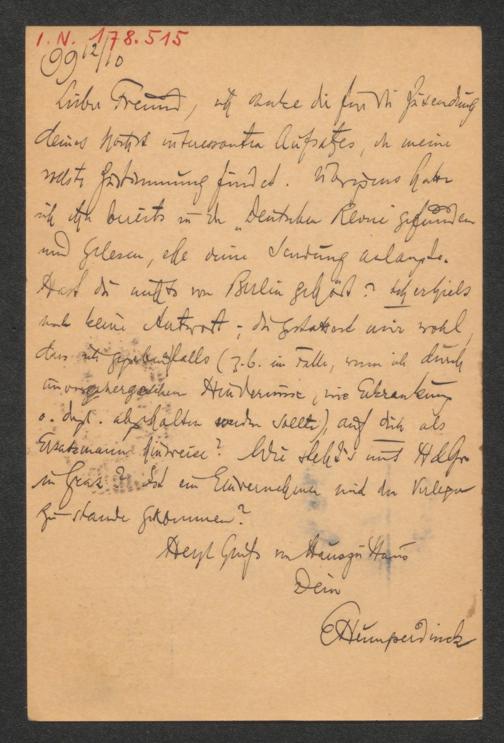 I. N. 178.515
99 12/10
Lieber Freund, ich danke dir für die Zusendung
deines höchst interessanten Aufsatzes, der meine
vollste Zustimmung findet. Übrigens hatte
ich ihn bereits in der „Deutschen Revue" gefunden
und gelesen, ehe deine Sendung anlangte.
Hast du nichts von Berlin gehört? Ich erhielt
noch keine Antwort; du gestattest mir wohl,
dass ich gegebenfalls (z.b. im Falle, wenn ich durch
unvorhergesehene Hindernisse, wie Erkrankung
o. drgl. abgehalten werden sollte), auf dich als
Ersatzmann hinweise? Wie steht's mit
in Graz? Ist ein Einvernehmen mit dem Verleger
zu stande gekommen?
Herzl Gruß von Haus zu Haus
Dein
EHumperdinck